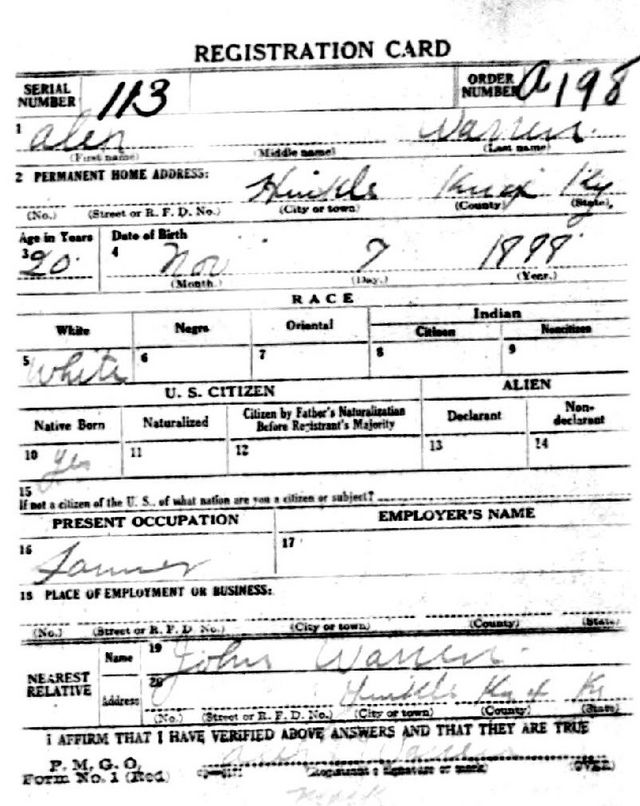 REGISTRATION CARD
SERIAL NUMBER 113 ORDER NUMBER A198
1 Alex Warren
(First name) (Middle name) (Last name)
2 PERMANENT HOME ADDRESS: Hinkle Knox Ky
(No.) (Street or R. F. D. No.) (City or town) (County) (State)
Age in Years Date of Birth
3 20 4 Nov 7 1898
(Month.) (Day.) (Year.)
RACE
White Negro Oriental Indian
Citizen Noncitizen
5 White 6 7 8 9
U. S. CITIZEN ALIEN
Native Born Naturalized Citizen by Father's Naturalization Before Registrant's Majority Declarant Non-declarant
10 Yes 11 12 13 14
15
If not a citizen of the U. S., of what nation are you a citizen or subject?
PRESENT OCCUPATION EMPLOYER'S NAME
16 Farmer 17
18 PLACE OF EMPLOYMENT OR BUSINESS:
(No.) (Street or R. F. D. No.) (City or town) (County) (State)
NEAREST RELATIVE Name 19 John Warren
Address 20 Hinkle Knox Ky
(No.) (Street or R. F. D. No.) (City or town) (County) (State)
I AFFIRM THAT I HAVE VERIFIED ABOVE ANSWERS AND THAT THEY ARE TRUE
P. M. G. O.
Form No. 1 (Red) Warren
(Registrant's signature or mark) (OVER)